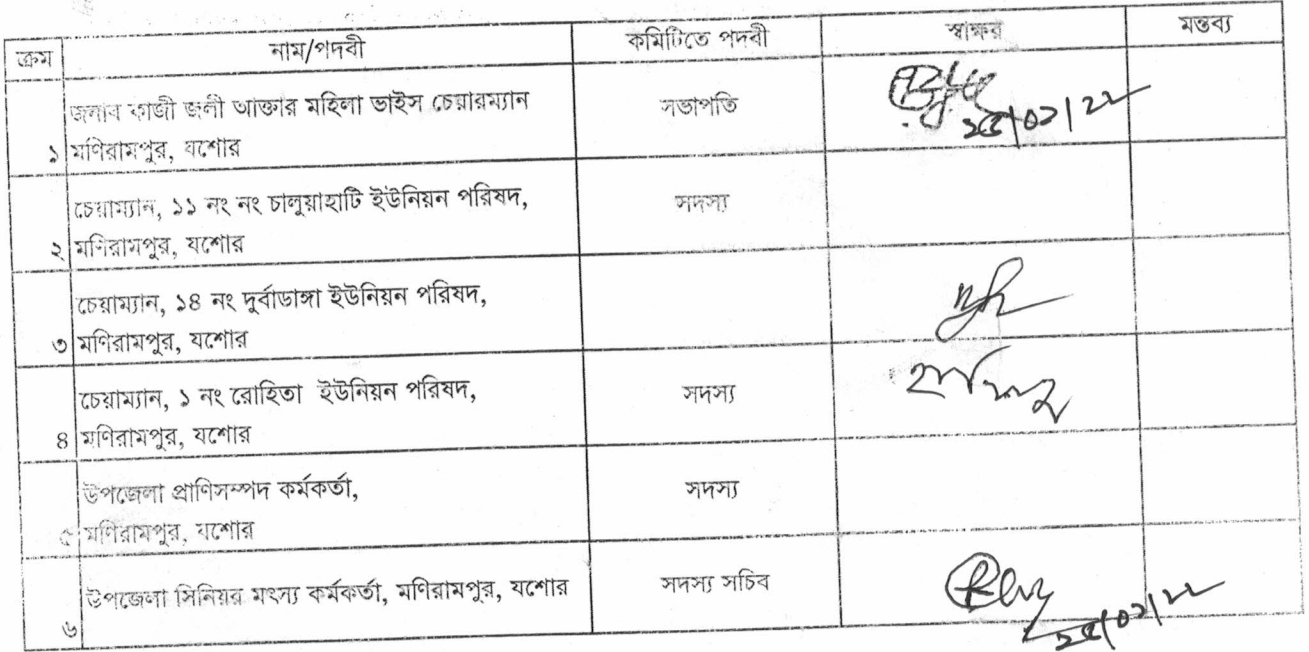 ক্রম নাম/পদবী কমিটিতে পদবী স্বাক্ষর মন্তব্য
জনাব কাজী জলী আক্তার মহিলা ভাইস চেয়ারম্যান সভাপতি
১ মণিরামপুর, যশোর
২৫/০১/২২
চেয়াম্যান, ১১ নং নং চালুয়াহাটি ইউনিয়ন পরিষদ, সদস্য
২ মণিরামপুর, যশোর
চেয়াম্যান, ১৪ নং দুর্বাডাঙ্গা ইউনিয়ন পরিষদ,
৩ মণিরামপুর, যশোর
চেয়াম্যান, ১ নং রোহিতা ইউনিয়ন পরিষদ, সদস্য
৪ মণিরামপুর, যশোর
উপজেলা প্রাণিসম্পদ কর্মকর্তা, সদস্য
৫ মণিরামপুর, যশোর
উপজেলা সিনিয়র মৎস্য কর্মকর্তা, মণিরামপুর, যশোর সদস্য সচিব
৬
২৫/০১/২২